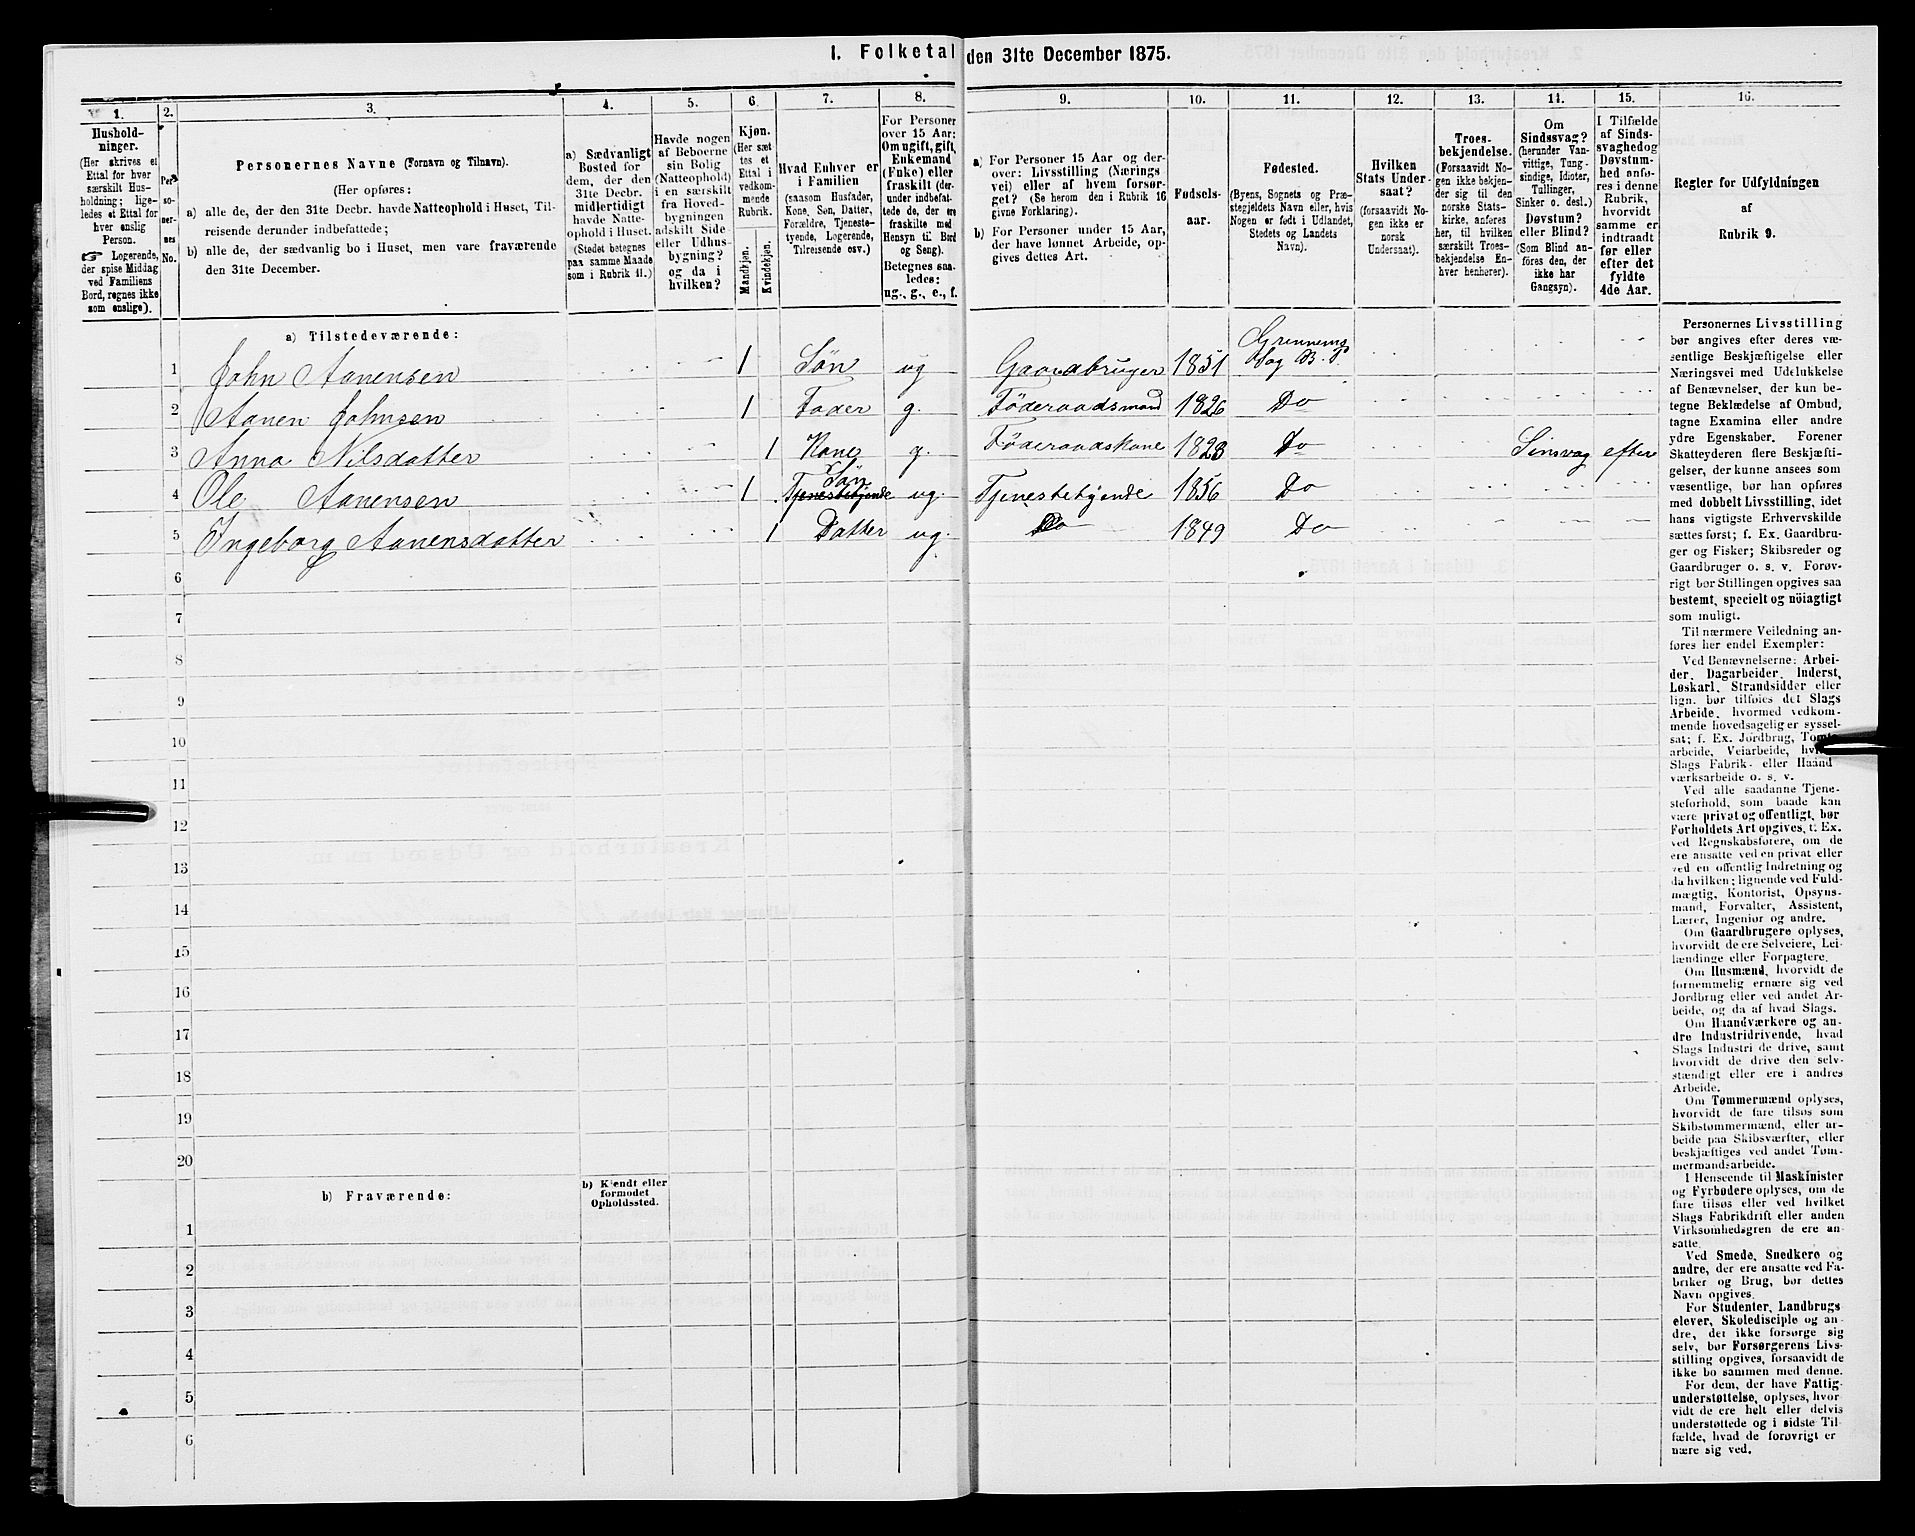 I. Folketal den 31te December 1875.
1. 2. 3. 4. 5. 6. 7. 8. 9. 10. 11. 12. 13. 14. 15. 16.
Hushold-
ninger.
(Her skrives et
Ettal for hver
særskilt Hus-
holdning; lige-
ledes et Ettal for
hver enslig
Person.
☞ Logerende,
der spise Middag
ved Familiens
Bord, regnes ikke
som enslige).
Per-
so-
ner-
nes
No.
Personernes Navne (Fornavn og Tilnavn).
(Her opføres:
a) alle de, der den 31te Decbr. havde Natteophold i Huset, Til-
reisende derunder indbefattede;
b) alle de, der sædvanlig bo i Huset, men vare fraværende
den 31te December.
a) Sædvanligt
Bosted for
dem, der den
31te Decbr.
midlertidigt
havde Natte-
ophold i Huset.
(Stedet betegnes
paa samme Maade
som i Rubrik 11.)
Havde nogen
af Beboerne
sin Bolig
(Natteophold)
i en særskilt
fra Hoved-
bygningen
adskilt Side-
eller Udhus-
bygning?
og da i
hvilken?
Kjøn.
(Her sæt-
tes et
Ettal i
vedkom-
mende
Rubrik.
Mandkjøn.
Kvindekjøn.
Hvad Enhver er
i Familien
(saasom Husfader,
Kone, Søn, Datter,
Forældre, Tjeneste-
tyende, Logerende,
Tilreisende osv.)
For Personer
over 15 Aar:
Om ugift, gift,
Enkemand
(Enke) eller
fraskilt (der-
under indbefat-
tede de, der ere
fraskilte med
Hensyn til Bord
og Seng).
Betegnes saa-
ledes:
ug., g., e., f.
a) For Personer 15 Aar og der-
over: Livsstilling (Nærings-
vei) eller af hvem forsør-
get? (Se herom den i Rubrik 16
givne Forklaring).
b) For Personer under 15 Aar,
der have lønnet Arbeide, op-
gives dettes Art.
Fødsels-
aar.
Fødested.
(Byens, Sognets og Præ-
stegjeldets Navn eller, hvis
Nogen er født i Udlandet,
Stedets og Landets
Navn).
Hvilken
Stats Under-
saat?
(forsaavidt No-
gen ikke er
norsk
Undersaat).
Troes-
bekjendelse.
(Forsaavidt No-
gen ikke bekjen-
der sig til den
norske Stats-
kirke, anføres
her, til hvilken
særskilt Troes-
bekjendelse En-
hver henhører).
Om
Sindssvag?
(herunder Van-
vittige, Tung-
sindige, Idioter,
Tullinger,
Sinker o. desl.)
Døvstum?
eller Blind?
(Som Blind an-
føres den, der
ikke har
Gangsyn).
I Tilfælde
af Sinds-
svaghed og
Døvstum-
hed anfø-
res i denne
Rubrik,
hvorvidt
samme er
indtraadt
før eller
efter det
fyldte
4de Aar.
Regler for Udfyldningen
af
Rubrik 9.
a) Tilstedeværende:
1 John Aanensen 1 Søn ug Gaardbruger 1851 Grinnems Sog B. P
2 Aanen Johnsen 1 Fader g. Föderaadsmand 1826 Do
3 Anna Nilsdatter 1 Kone g. Föderaadskone 1823 Do Sinsvag efter
4 Ole Aanensen 1 Tjenestetyende Søn ug. Tjenestetyende 1856 Do
5 Ingeborg Aanensdatter 1 Datter ug. Do 1849 Do
6
7
8
9
10
11
12
13
14
15
16
17
18
19
20
b) Fraværende:
b) Kjendt eller
formodet
Opholdssted.
1
2
3
4
5
6
Personernes Livsstilling
bør angives efter deres væ-
sentlige Beskjæftigelse eller
Næringsvei med Udelukkelse
af Benævnelser, der kun be-
tegne Beklædelse af Ombud,
tagne Examina eller andre
ydre Egenskaber. Forener
Skatteyderen flere Beskjæfti-
gelser, der kunne ansees som
væsentlige, bør han opføres
med dobbelt Livsstilling, idet
hans vigtigste Erhvervskilde
sættes først; f. Ex. Gaardbru-
ger og Fisker; Skibsreder og
Gaardbruger o. s. v. Forøv-
rigt bør Stillingen opgives saa
bestemt, specielt og nöiagtigt
som muligt.
Til nærmere Veiledning an-
føres her endel Exempler:
Ved Benævnelserne: Arbei-
der, Dagarbeider, Inderst,
Løskarl, Strandsidder eller
lign. bør tilføies det Slags
Arbeide, hvormed vedkom-
mende hovedsagelig er syssel-
sat; f. Ex. Jordbrug, Tomte-
arbeide, Veiarbeide, hvilket
Slags Fabrik- eller Haand-
værksarbeide o. s. v.
Ved alle saadanne Tjene-
steforhold, som baade kan
være privat og offentligt, bør
Forholdets Art opgives, t. Ex.
ved Regnskabsførere, om de
ere ansatte ved en privat eller
ved en offentlig Indretning og
da hvilken; lignende ved Fuld-
mægtig, Kontorist, Opsyns-
mand, Forvalter, Assistent,
Lærer, Ingeniør og andre.
Om Gaardbrugere oplyses,
hvorvidt de ere Selveiere, Lei-
lændinge eller Forpagtere.
Om Husmænd, hvorvidt de
fornemmelig ernære sig ved
Jordbrug eller ved andet Ar-
beide, og da af hvad Slags.
Om Haandværkere og an-
dre Industridrivende, hvad
Slags Industri de drive, samt
hvorvidt de drive den selv-
stændigt eller ere i andres
Arbeide.
Om Tømmermænd oplyses,
hvorvidt de fare tilsøs som
Skibstømmermænd, eller ar-
beide paa Skibsværfter, eller
beskjæftiges ved andet Tøm-
mermandsarbeide.
I Henseende til Maskinister
og Fyrbødere oplyses, om de
fare tilsøs eller ved hvilket
Slags Fabrikdrift eller anden
Virksomhedsgren de ere an-
satte.
Ved Smede, Snedkere og
andre, der ere ansatte ved Fa-
briker og Brug, bør dettes
Navn opgives.
For Studenter, Landbrugs-
elever, Skoledisciple og an-
dre, der ikke forsørge sig
selv, bør Forsørgerens Livs-
stilling opgives, forsaavidt de
ikke bo sammen med denne.
For dem, der have Fattig-
understøttelse, oplyses, hvor-
vidt de ere helt eller delvis
understøttede og i sidste Til-
fælde, hvad de forøvrigt er-
nære sig ved.